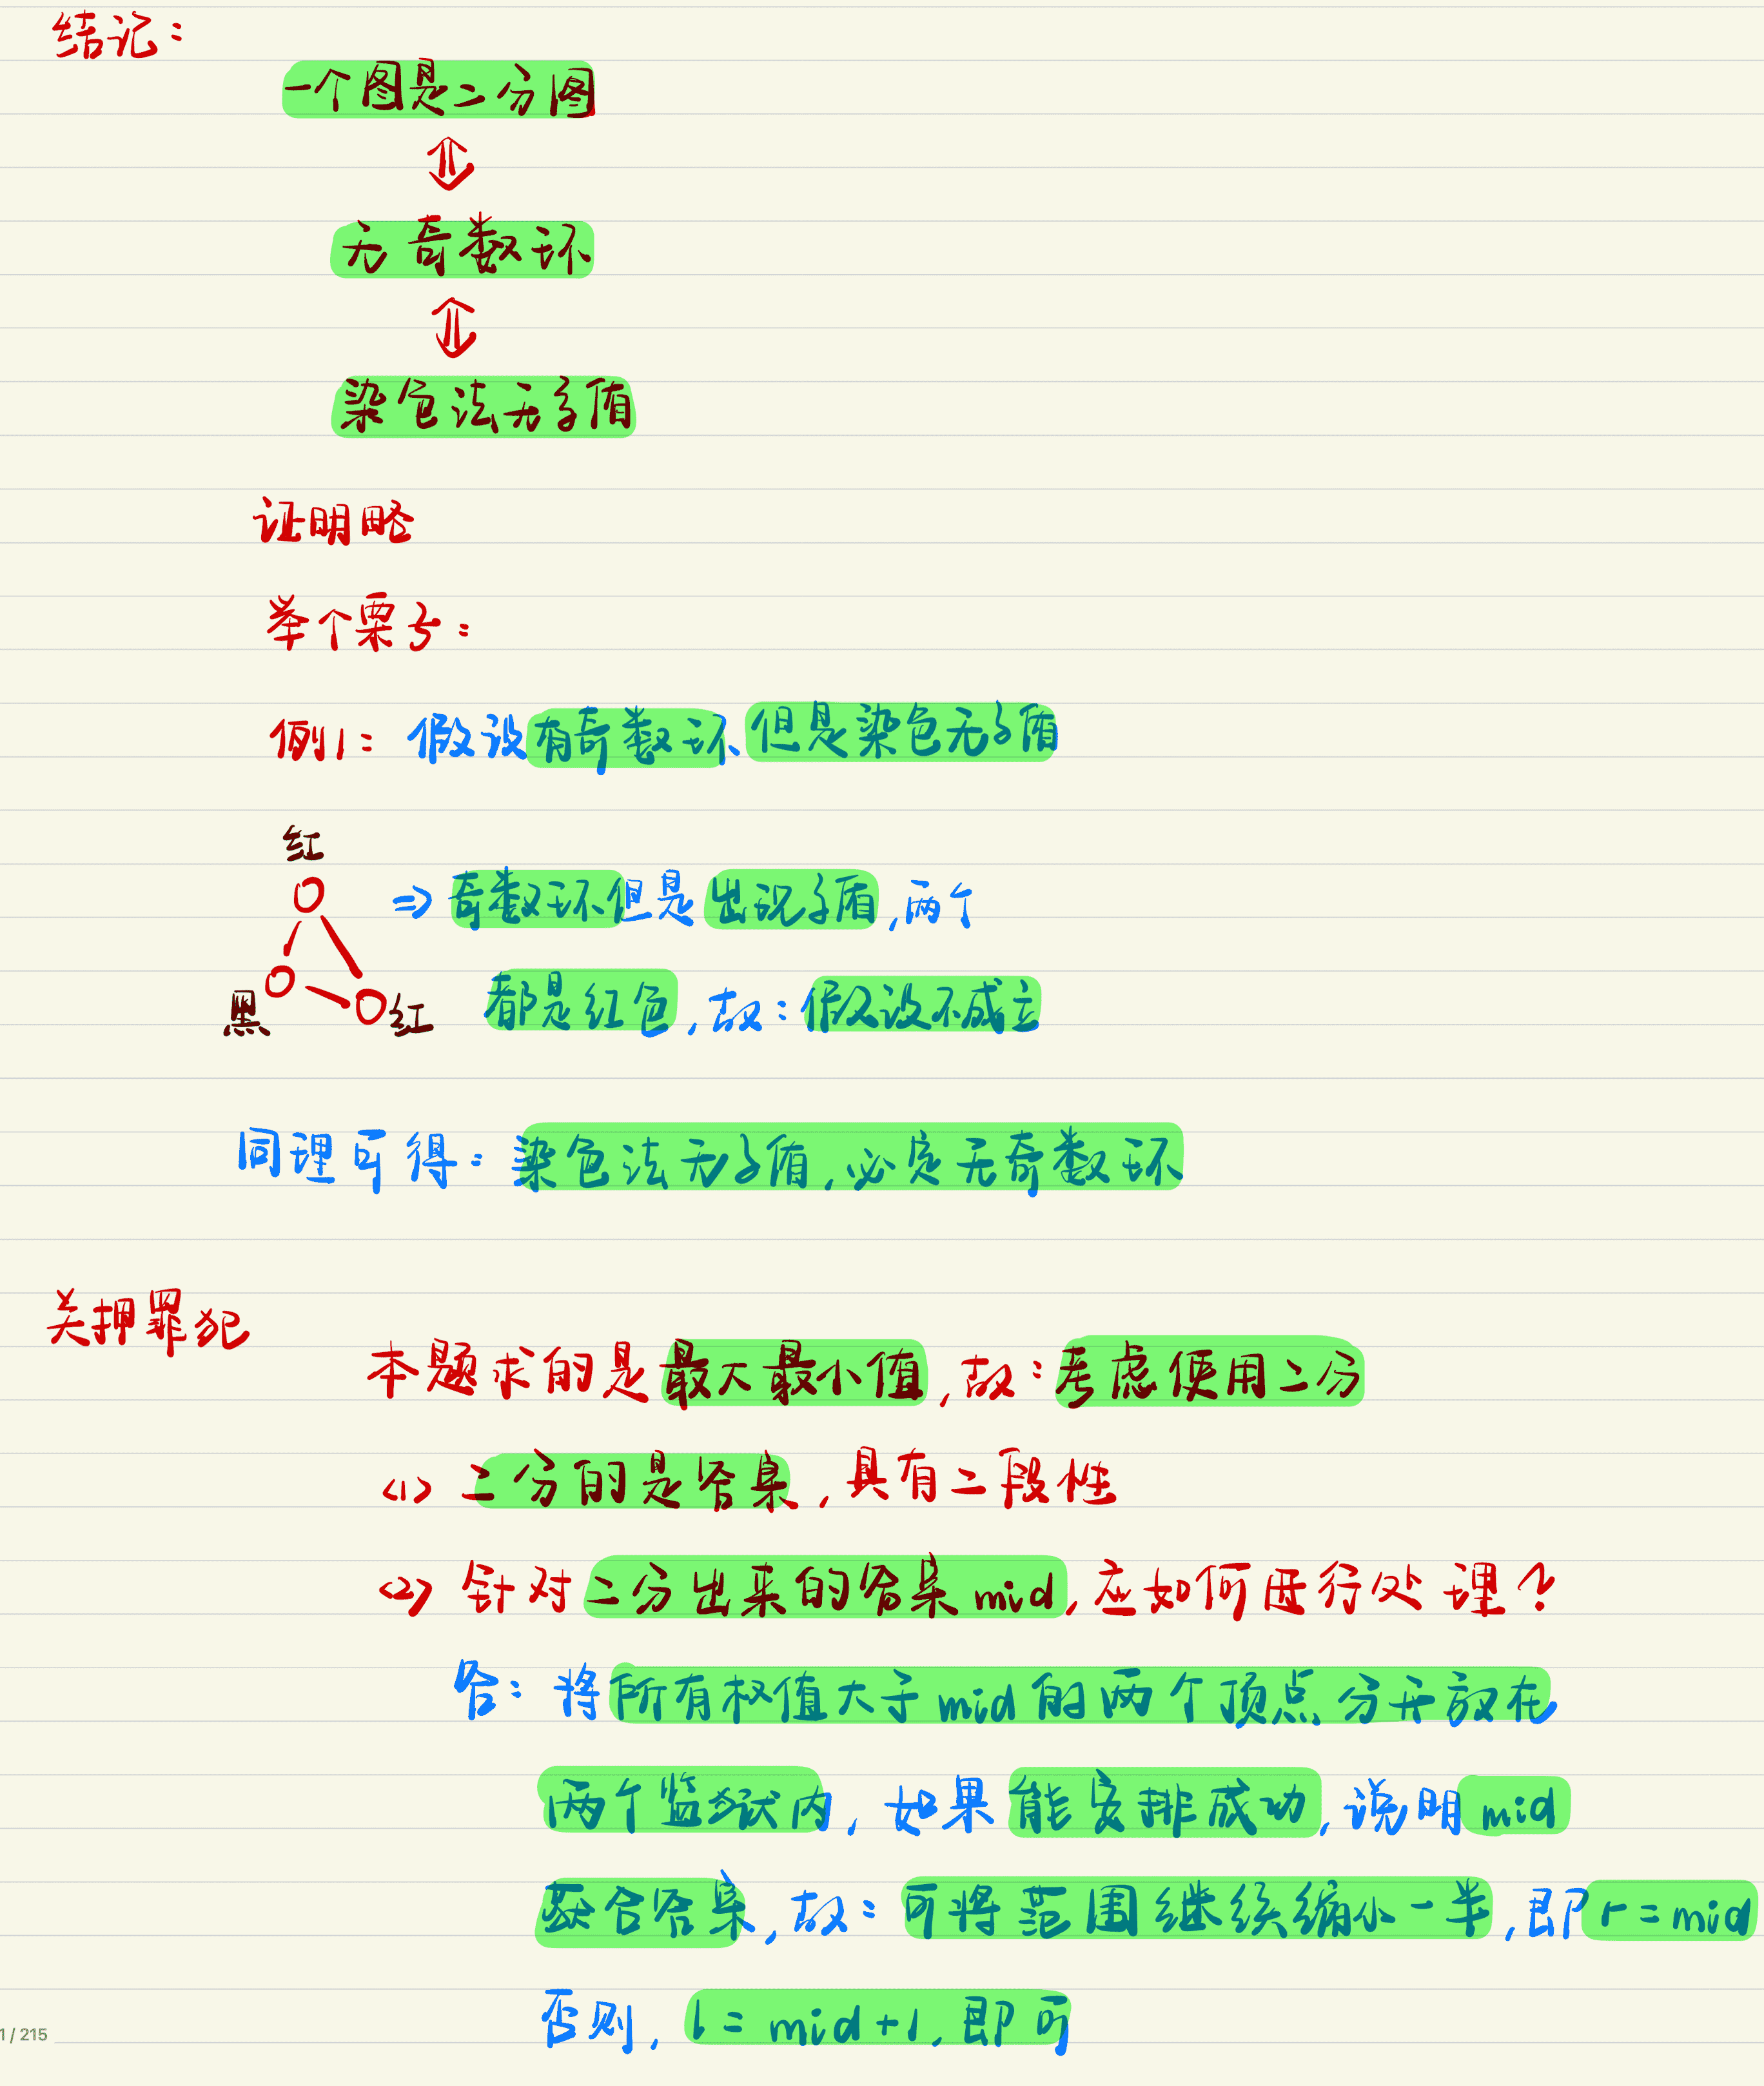 结论：
一个图是二分图
⇕
无奇数环
⇕
染色法无矛盾
证明略
举个栗子：
例1：假设有奇数环，但是染色无矛盾
红
⇒ 奇数环但是出现矛盾，两个
黑
红
都是红色，故：假设不成立
同理可得：染色法无矛盾，必定无奇数环
关押罪犯
本题求的是最大最小值，故：考虑使用二分
(1) 二分的是答案，具有二段性
(2) 针对二分出来的答案mid，应如何进行处理？
答：将所有权值大于mid的两个顶点分开放在
两个监狱内，如果能安排成功，说明mid
符合答案，故：可将范围继续缩小一半，即r=mid
否则，l=mid+1，即可
1/215